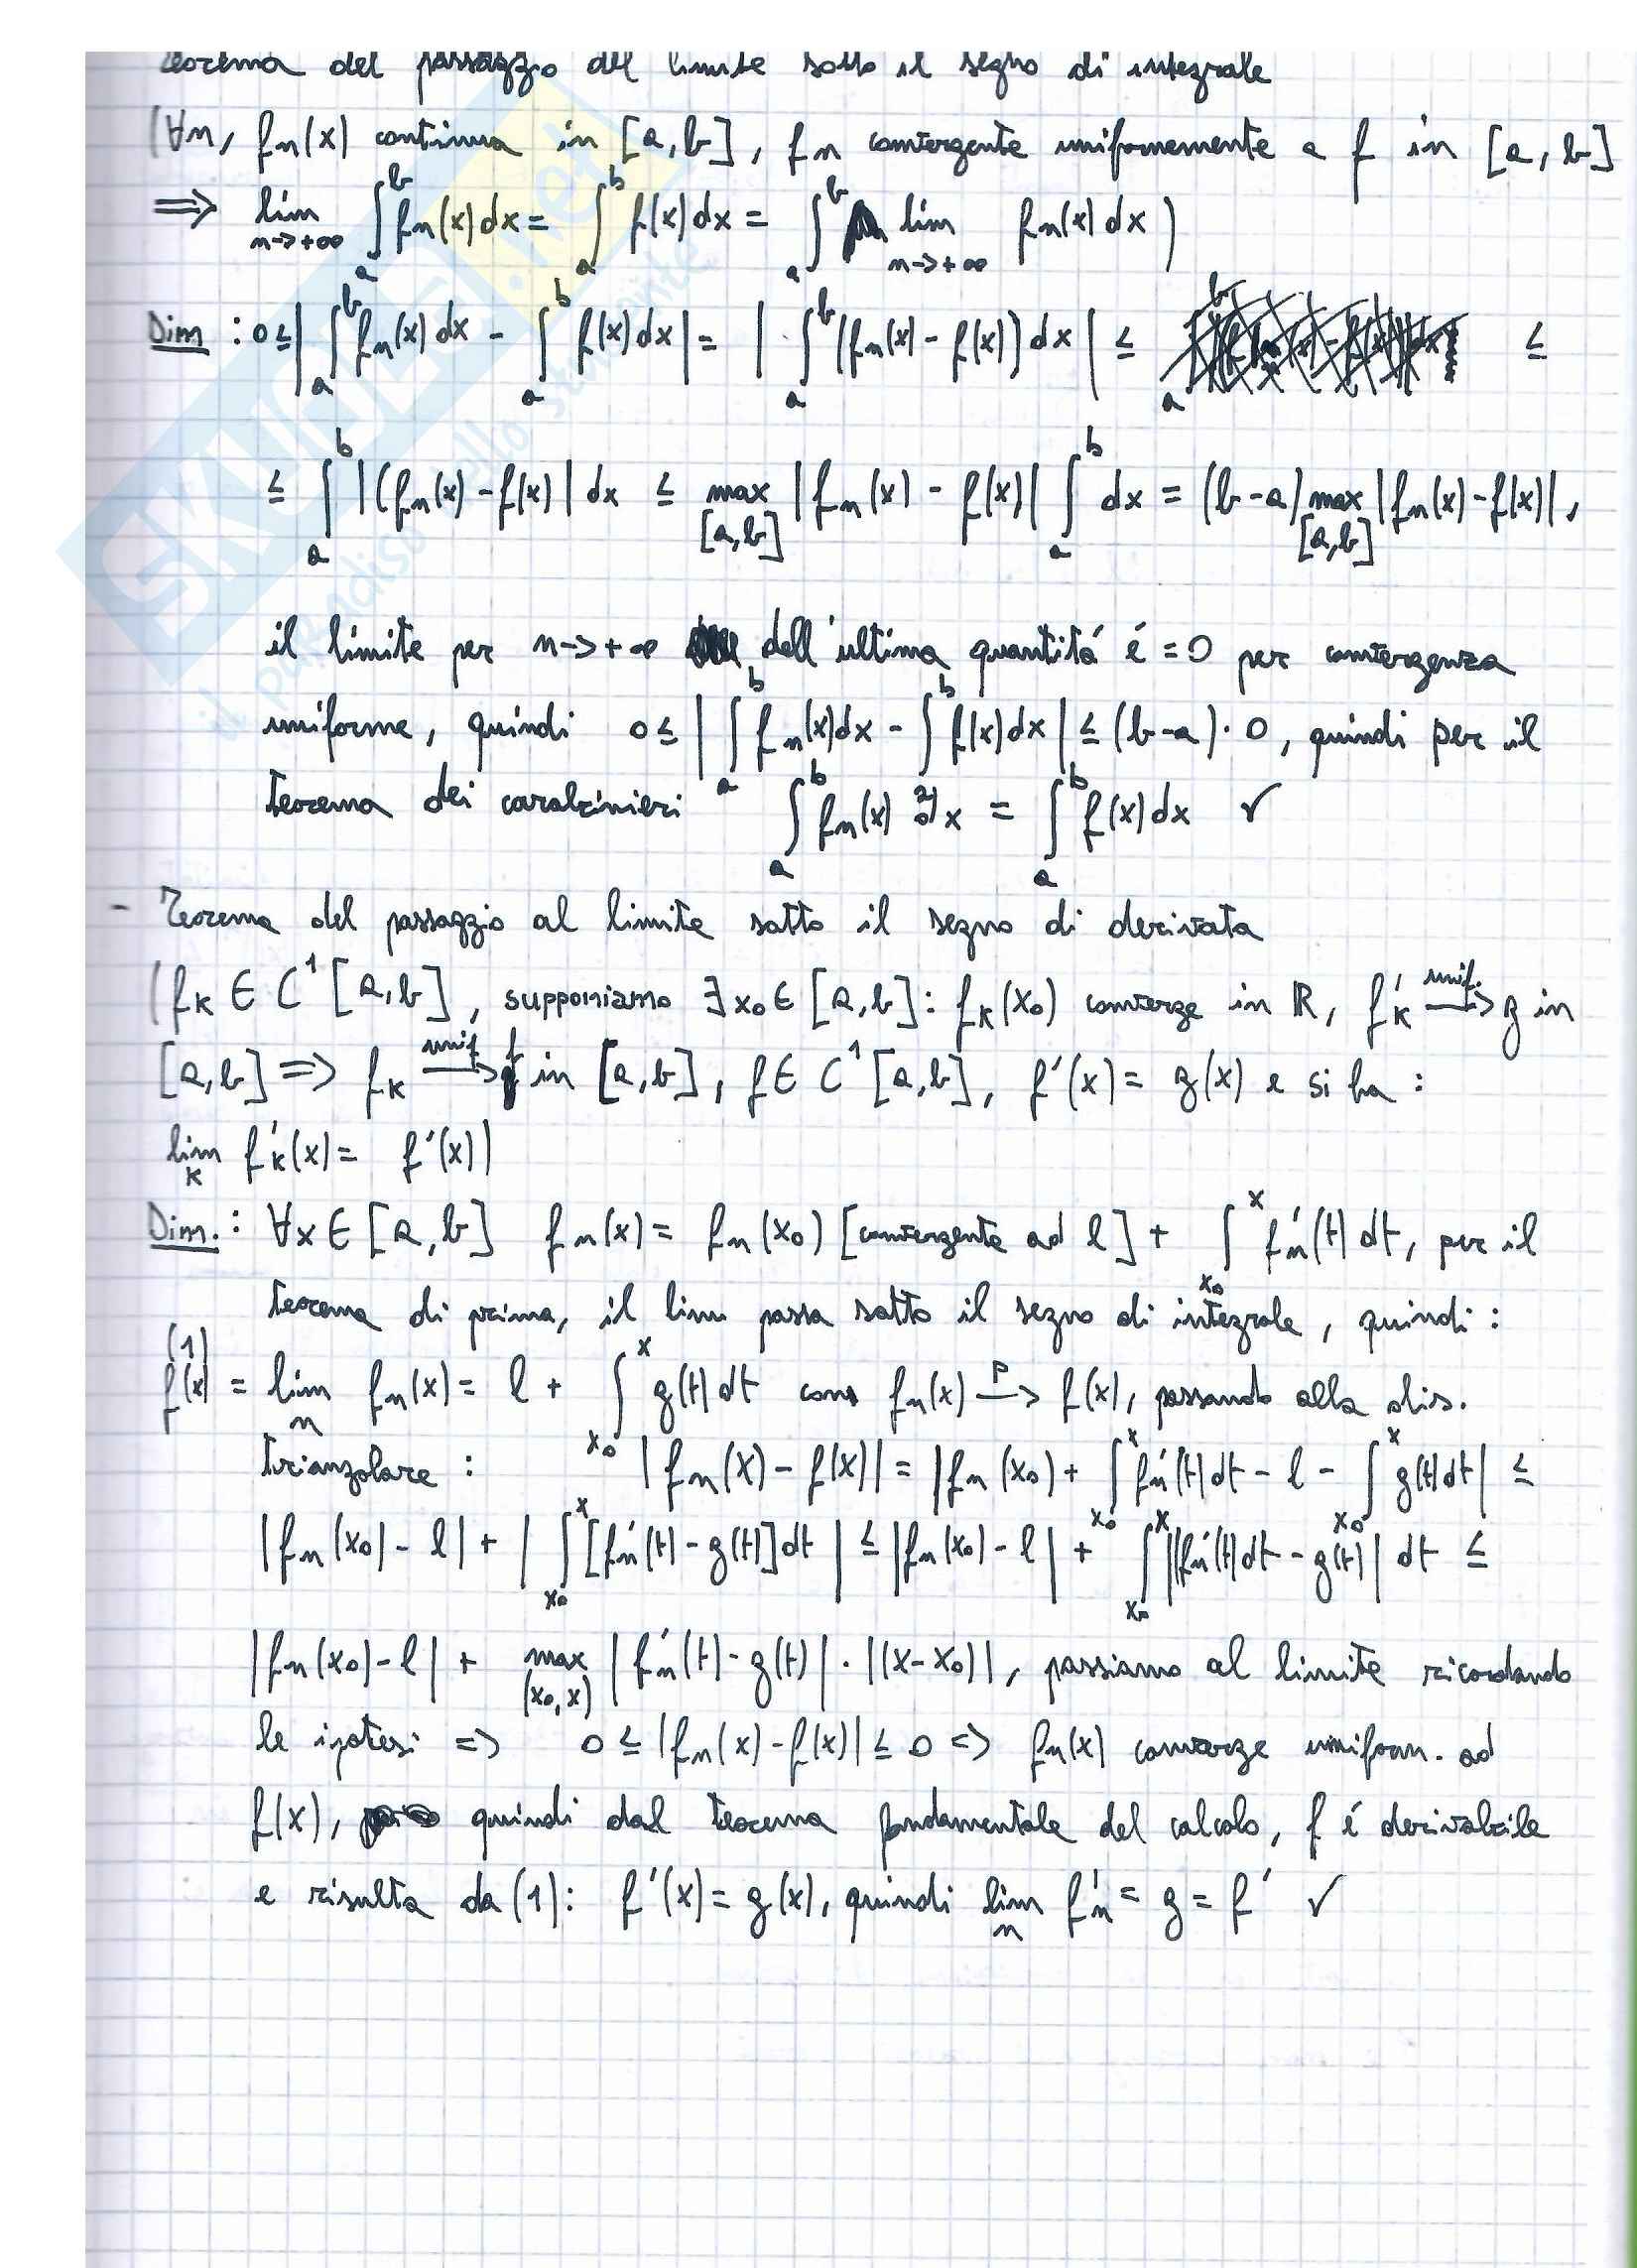 Teorema del passaggio del limite sotto il segno di integrale
(∀n, fn(x) continua in [a,b], fn convergente uniformemente a f in [a,b]
⇒ lim n->+∞ ∫ₐᵇ fn(x)dx = ∫ₐᵇ f(x)dx = ∫ₐᵇ lim n->+∞ fn(x)dx)
Dim: 0≤|∫ₐᵇ fn(x)dx - ∫ₐᵇ f(x)dx| = |∫ₐᵇ (fn(x) - f(x))dx| ≤ ≤
≤ ∫ₐᵇ |(fn(x) - f(x)| dx ≤ max [a,b] |fn(x) - f(x)| ∫ₐᵇ dx = (b-a) max [a,b] |fn(x)-f(x)|,
il limite per n->+∞ dell'ultima quantitá é =0 per convergenza
uniforme, quindi 0≤|∫ₐᵇ fn(x)dx - ∫ₐᵇ f(x)dx| ≤ (b-a)·0, quindi per il
teorema dei carabinieri ∫ₐᵇ fn(x) dx = ∫ₐᵇ f(x)dx ✓
- Teorema del passaggio al limite sotto il segno di derivata
(fk ∈ C¹[a,b], supponiamo ∃x₀∈[a,b]: fk(x₀) converge in ℝ, f'k unif.⟶ g in
[a,b] ⇒ fk unif⟶ f in [a,b], f∈C¹[a,b], f'(x) = g(x) e si ha:
lim k f'k(x) = f'(x))
Dim.: ∀x∈[a,b] fn(x) = fn(x₀) [convergente ad l] + ∫ₓ₀ˣ f'n(t)dt, per il
teorema di prima, il lim passa sotto il segno di integrale, quindi:
(1) f(x) = lim n fn(x) = l + ∫ₓ₀ˣ g(t)dt con fn(x) P⟶ f(x), passando alla dis.
triangolare: |fn(x) - f(x)| = |fn(x₀) + ∫ₓ₀ˣ f'n(t)dt - l - ∫ₓ₀ˣ g(t)dt| ≤
|fn(x₀) - l| + |∫ₓ₀ˣ [f'n(t) - g(t)]dt| ≤ |fn(x₀) - l| + ∫ₓ₀ˣ |f'n(t)dt - g(t)| dt ≤
|fn(x₀)-l| + max (x₀,x) |f'n(t) - g(t)| · |(x-x₀)|, passiamo al limite ricordando
le ipotesi => 0≤|fn(x)-f(x)|≤0 => fn(x) converge uniform. ad
f(x), quindi dal teorema fondamentale del calcolo, f é derivabile
e risulta da (1): f'(x) = g(x), quindi lim n f'n = g = f' ✓
SKUOLA.net
il paradiso dello studente